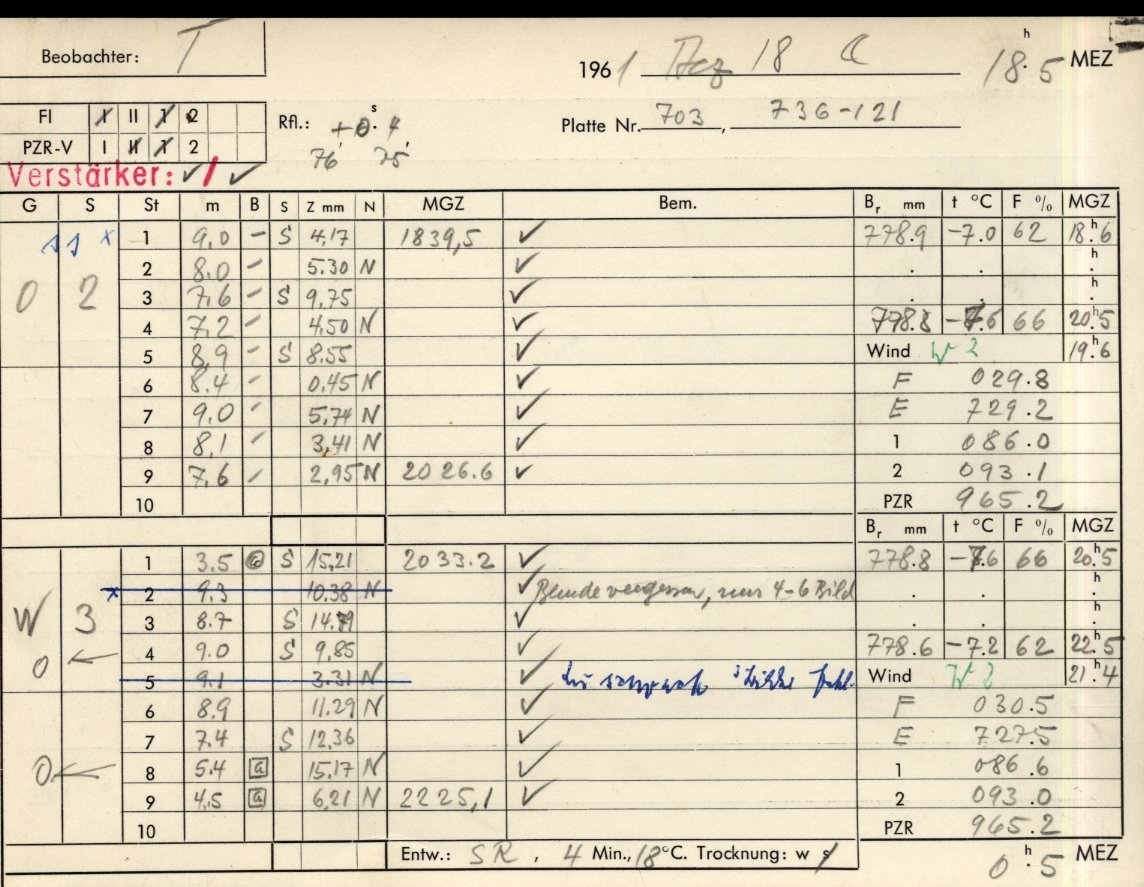 Beobachter: T 1961 Dez 18 18h.5 MEZ
FI I II 1 2 Rfl.: +0s.4 Platte Nr. 703, 736-121
PZR-V I II 1 2 76' 75'
Verstärker: ✓ / ✓
G S St m B S Z mm N MGZ Bem. Br mm t °C F % MGZ
11 x 1 9,0 - S 4,17 1839,5 ✓ 778.9 -7.0 62 18h.6
2 8,0 - 5.30 N ✓ . . h.
0 2 3 7,6 - S 9,75 ✓ . . h.
4 7,2 - 4,50 N ✓ 778.8 -7.6 66 20h.5
5 8,9 - S 8.55 ✓ Wind W 2 19h.6
6 8.4 - 0,45 N ✓ F 029.8
7 9,0 - 5,74 N ✓ E 729.2
8 8,1 - 3,41 N ✓ 1 086.0
9 7,6 - 2,95 N 2026.6 ✓ 2 093.1
10 PZR 965.2
Br mm t °C F % MGZ
1 3.5 S 15,21 2033.2 ✓ 778.8 -7.6 66 20h.5
x 2 9.3 10.38 N ✓ Blende vergessen, nur 4-6 Bild . . h.
W 3 3 8.7 S 14.79 ✓ . . h.
0 ← 4 9.0 S 9,85 ✓ 778.6 -7.2 62 22h.5
5 9.1 3.31 N ✓ zu schwach Wind W 2 21h.4
6 8.9 11.29 N ✓ F 030.5
7 7.4 S 12,36 ✓ E 727.5
0 ← 8 5.4 a 15.17 N ✓ 1 086.6
9 4,5 a 6,21 N 2225,1 ✓ 2 093.0
10 PZR 965.2
Entw.: SR, 4 Min., 18°C. Trocknung: w s 0h.5 MEZ